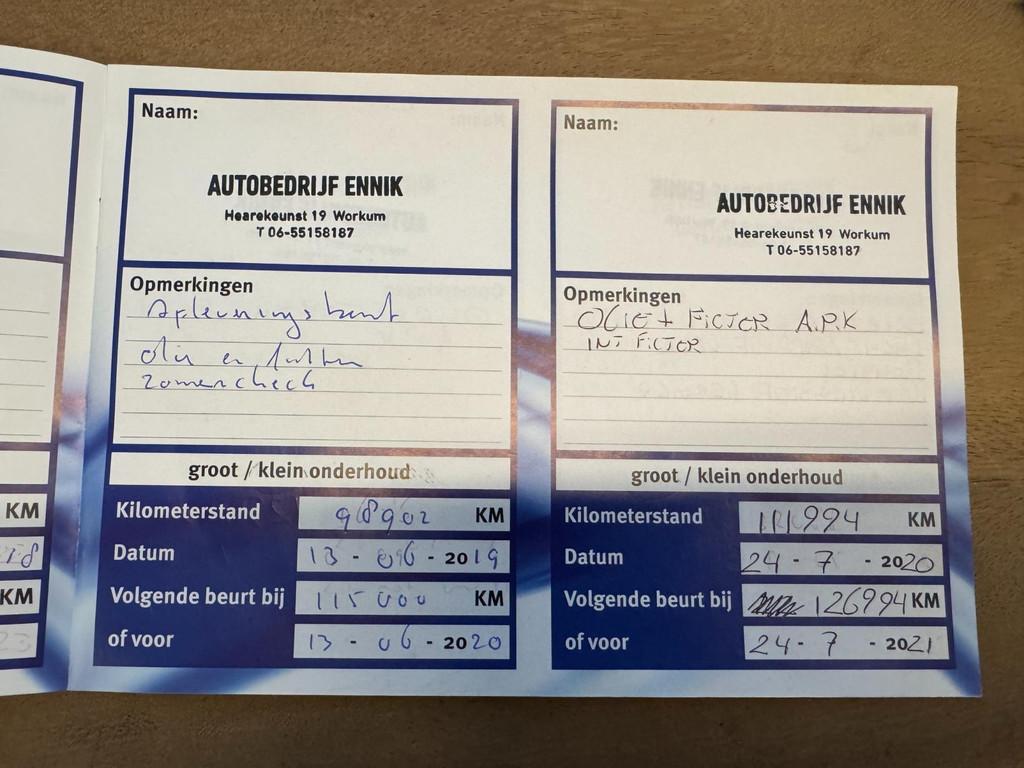 Naam:
AUTOBEDRIJF ENNIK
Hearekeunst 19 Workum
T 06-55158187
Opmerkingen
Afleveringsbeurt
olie en filter
zomercheck
groot / klein onderhoud
Kilometerstand 98902 KM
Datum 13 - 06 - 2019
Volgende beurt bij 115000 KM
of voor 13 - 06 - 2020
Naam:
AUTOBEDRIJF ENNIK
Hearekeunst 19 Workum
T 06-55158187
Opmerkingen
OLIE + FILTER A.P.K
INT FILTER
groot / klein onderhoud
Kilometerstand 111994 KM
Datum 24 - 7 - 2020
Volgende beurt bij 126994 KM
of voor 24 - 7 - 2021
KM
KM